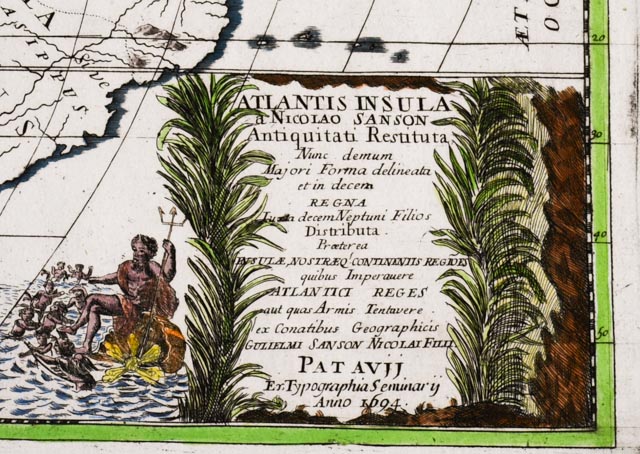 A
TIPRES
Sive
ÆT
OC
20
30
40
50
ATLANTIS INSULA
à NICOLAO SANSON
Antiquitati Restituta;
Nunc demum
Majori Forma delineata
et in decem
REGNA
Iuxta decem Neptuni Filios
Distributa.
Præterea
INSULÆ, NOSTRÆQ. CONTINENTIS REGIOES
quibus Imperauere
ATLANTICI REGES
aut quas Armis Tentavere
ex Conatibus Geographicis
GULIELMI SANSON NICOLAI FILII
PATAVIJ
Ex Typographia Seminarij
Anno 1694.